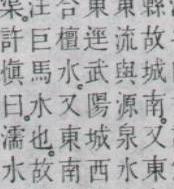 縣故城南。又東
東流與源泉水
東逕武陽城西
合檀水。又東南
注巨馬水也。故
渠。許慎曰。濡水